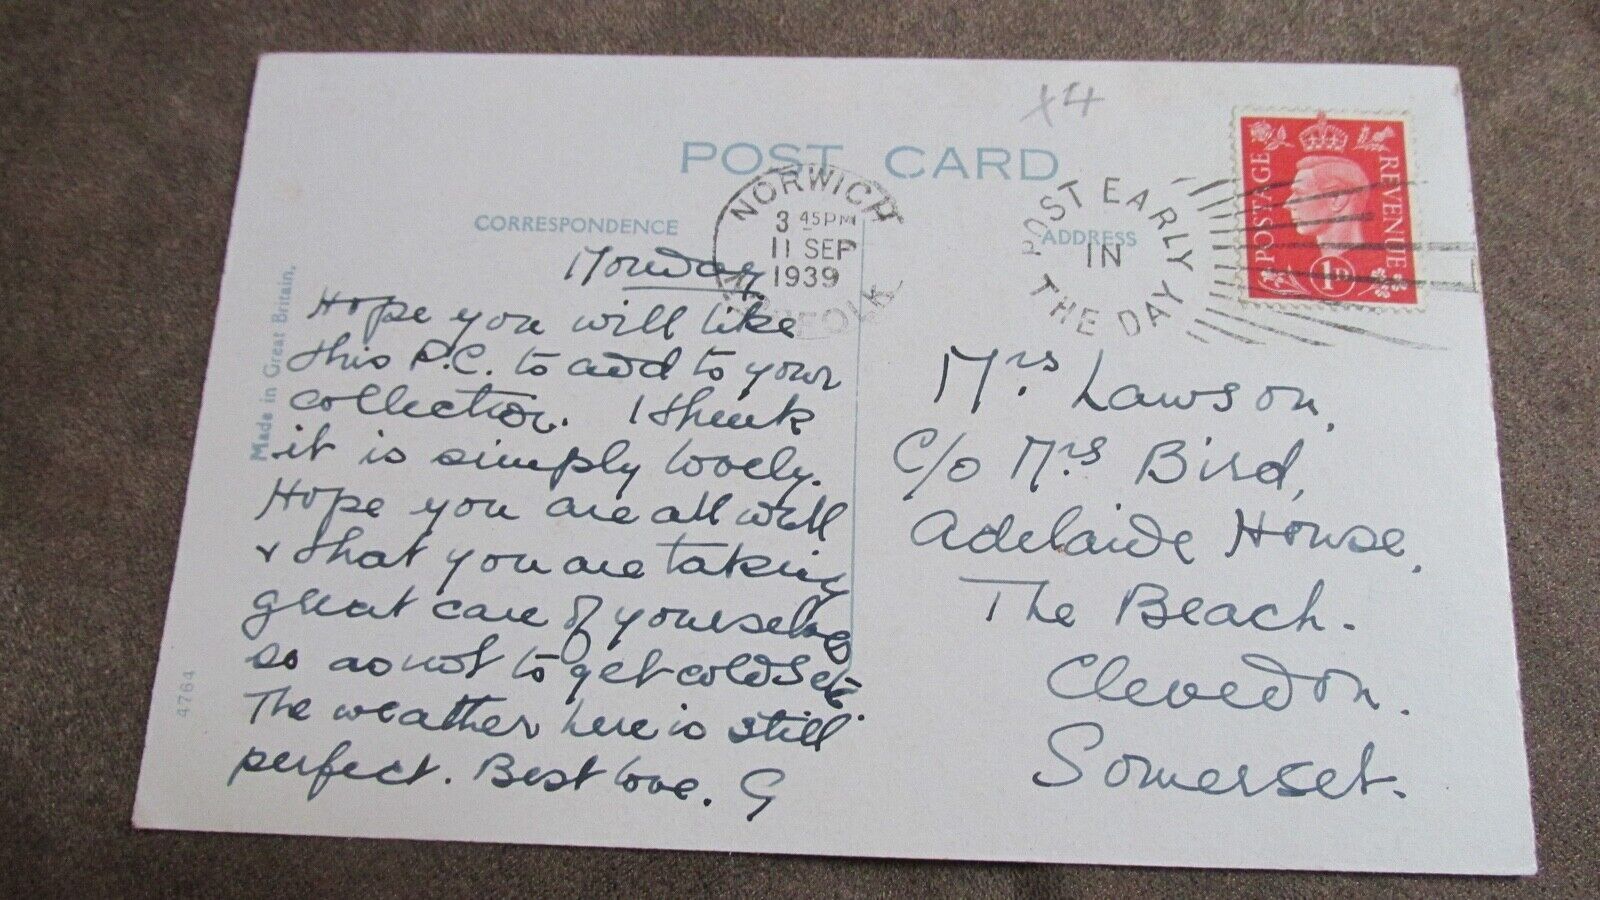 x4
POST CARD
CORRESPONDENCE
ADDRESS
NORWICH
3 45PM
11 SEP
1939
NORFOLK
POST EARLY
IN
THE DAY
POSTAGE
REVENUE
1D
Made in Great Britain.
4764
Monday
Hope you will like
this P.C. to add to your
collection. I think
it is simply lovely.
Hope you are all well
& that you are taking
great care of yourselves
so as not to get colds etc.
The weather here is still
perfect. Best love. G
Mrs Lawson,
C/o Mrs Bird,
Adelaide House,
The Beach.
Clevedon.
Somerset.